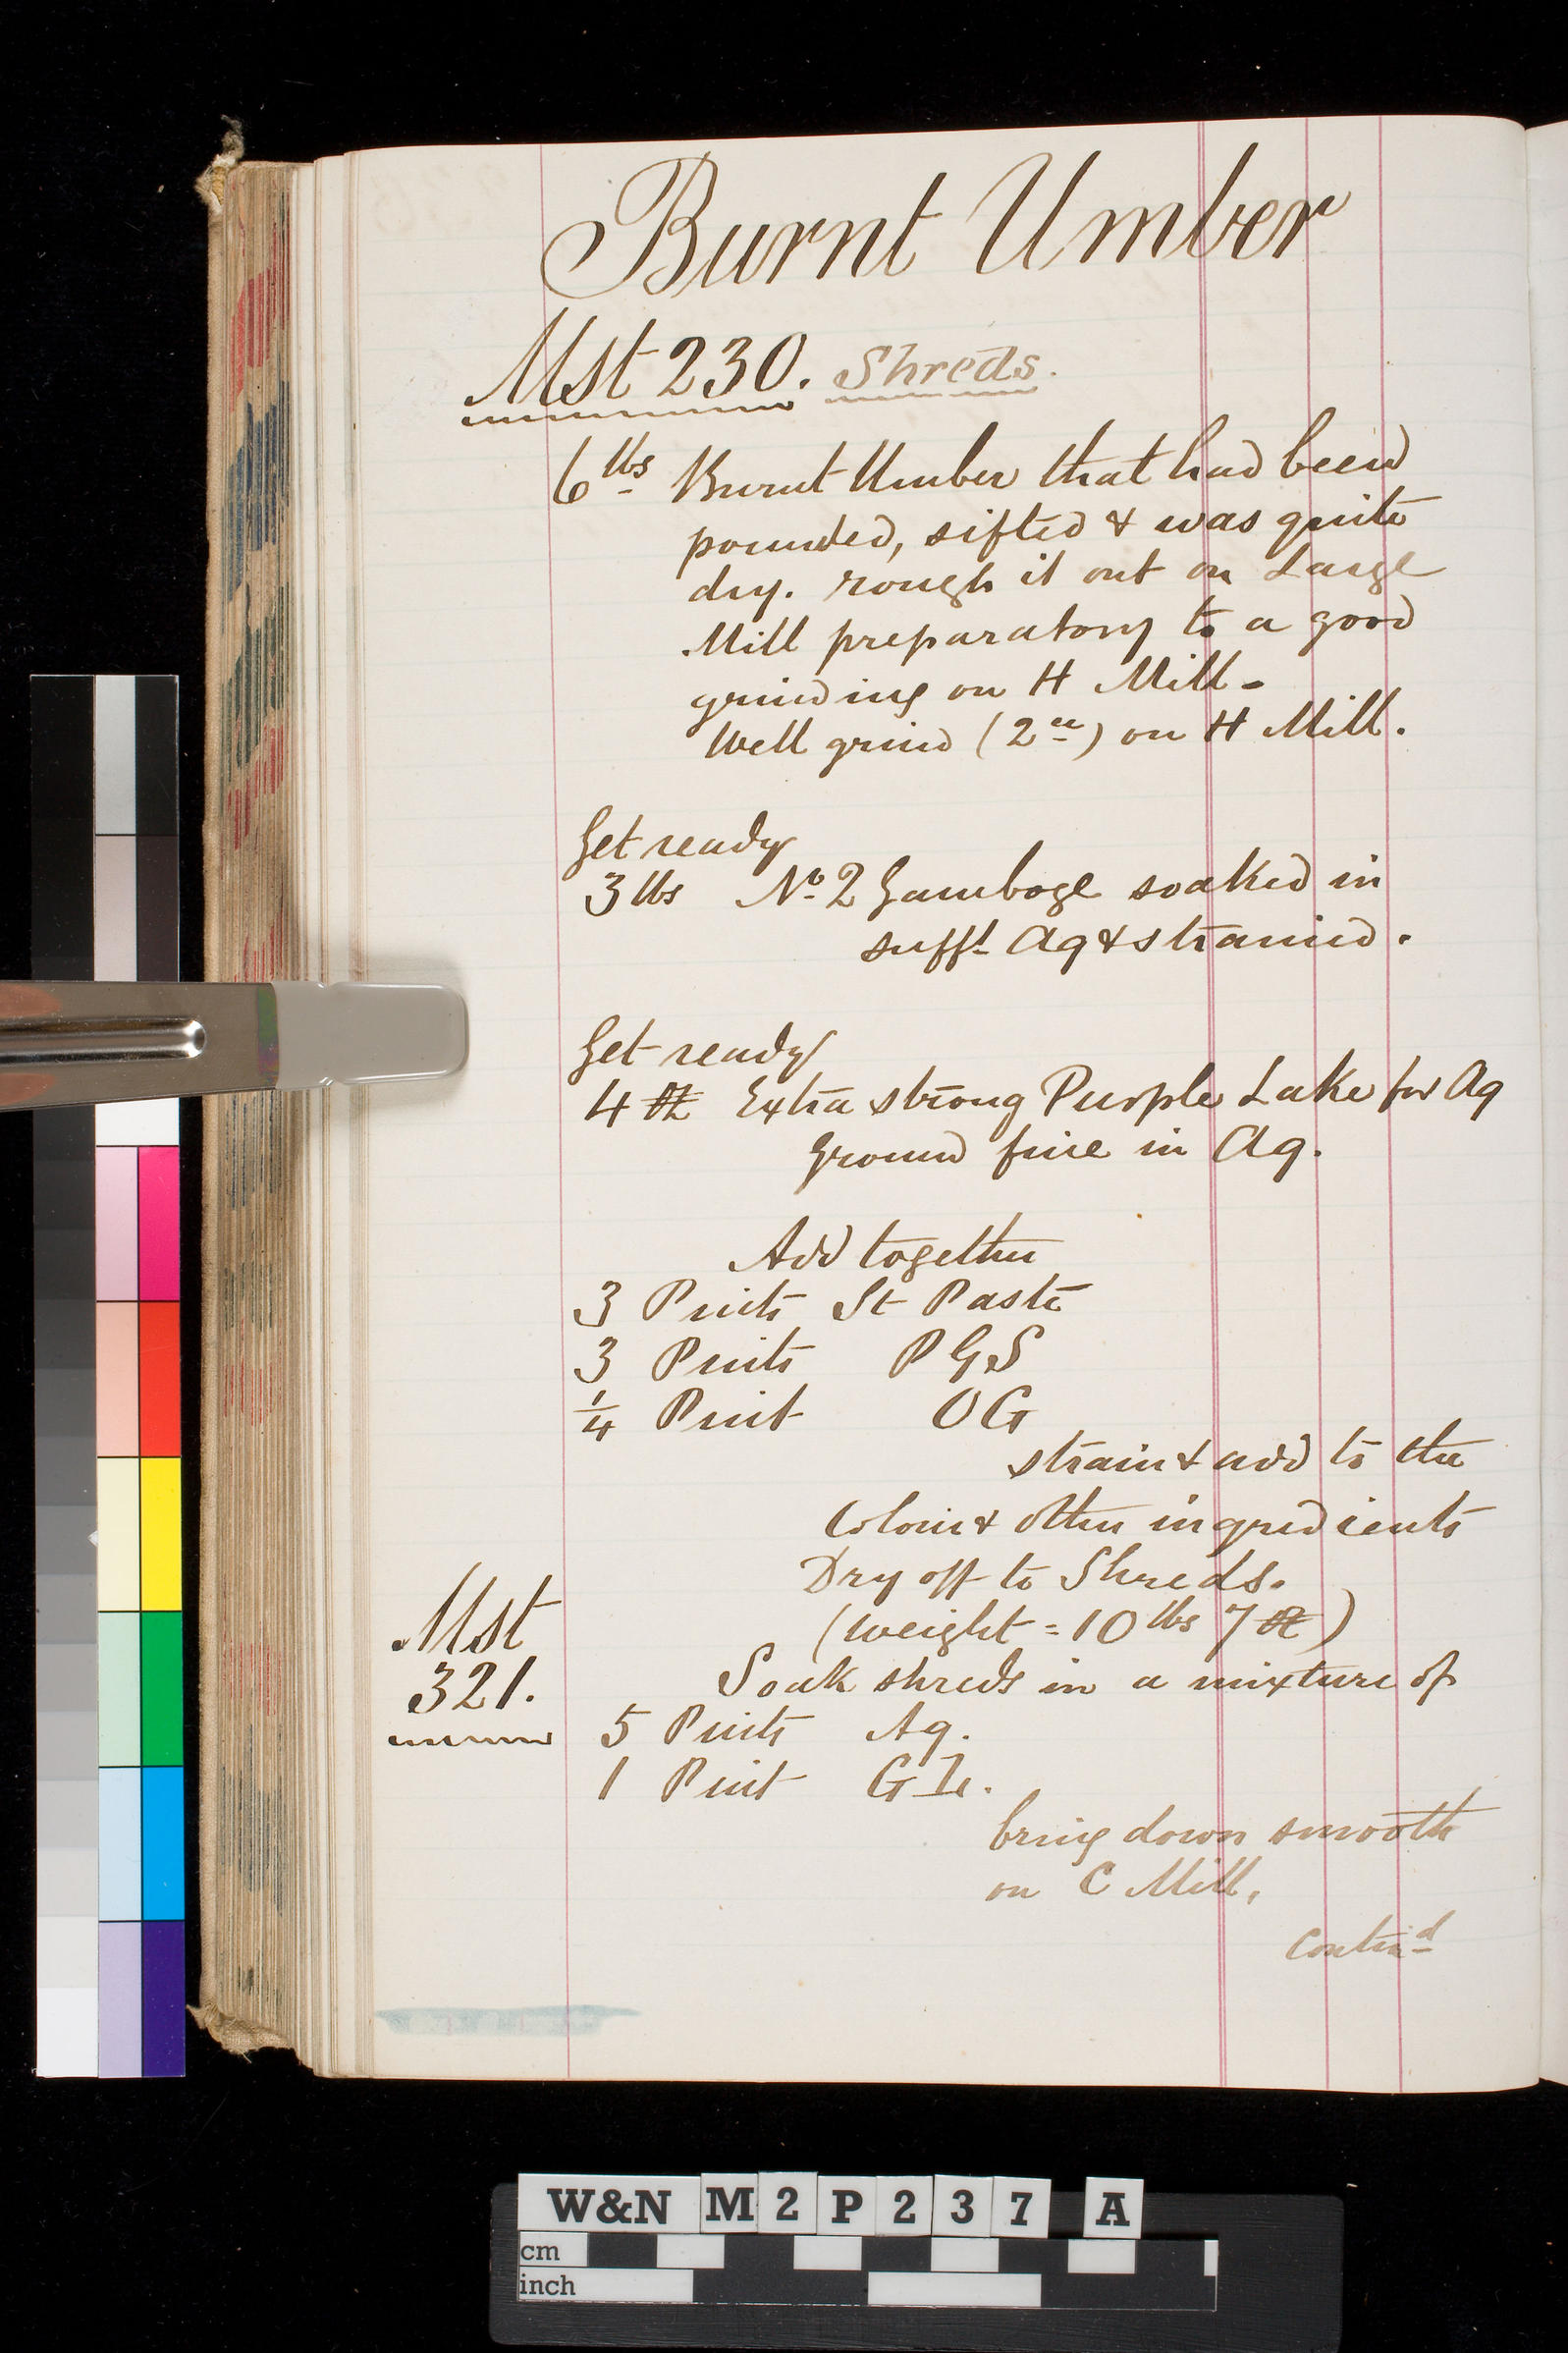 Burnt Umber
Mst 230. Shreds.
6 lbs Burnt Umber that had been
pounded, sifted & was quite
dry. rough it out on Large
Mill preparatory to a good
grinding on H Mill-
Well grind (2ce) on H Mill.
Get ready
3 lbs No 2 Gamboge soaked in
sufft Aq & strained.
Get ready
4 Extra strong Purple Lake for Aq
ground fine in Aq.
Add together
3 Pints St Paste
3 Pints PGS
1/4 Pint OG
strain & add to the
Colour & other ingredients
Dry off to Shreds.
(weight = 10 lbs 7 )
Mst
321.
Soak shreds in a mixture of
5 Pints Aq.
1 Pint
bring down smooth
on C Mill,
Contind
W&N M2P237 A
cm
inch